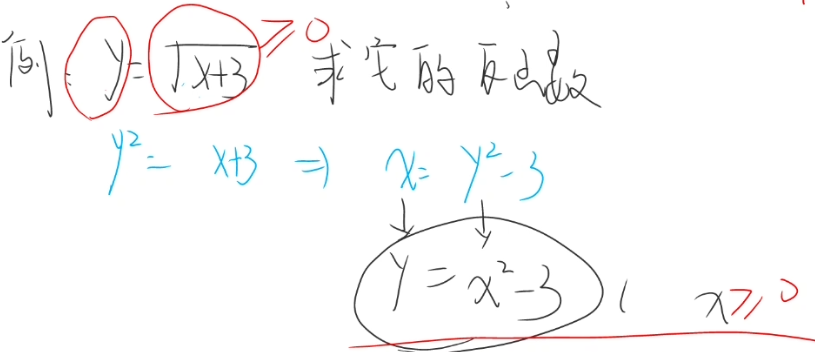 例: y=√x+3 ≥0 求它的反函数
y²= x+3 ⇒ x= y²-3
↓ ↓
y = x²-3 ( x≥0